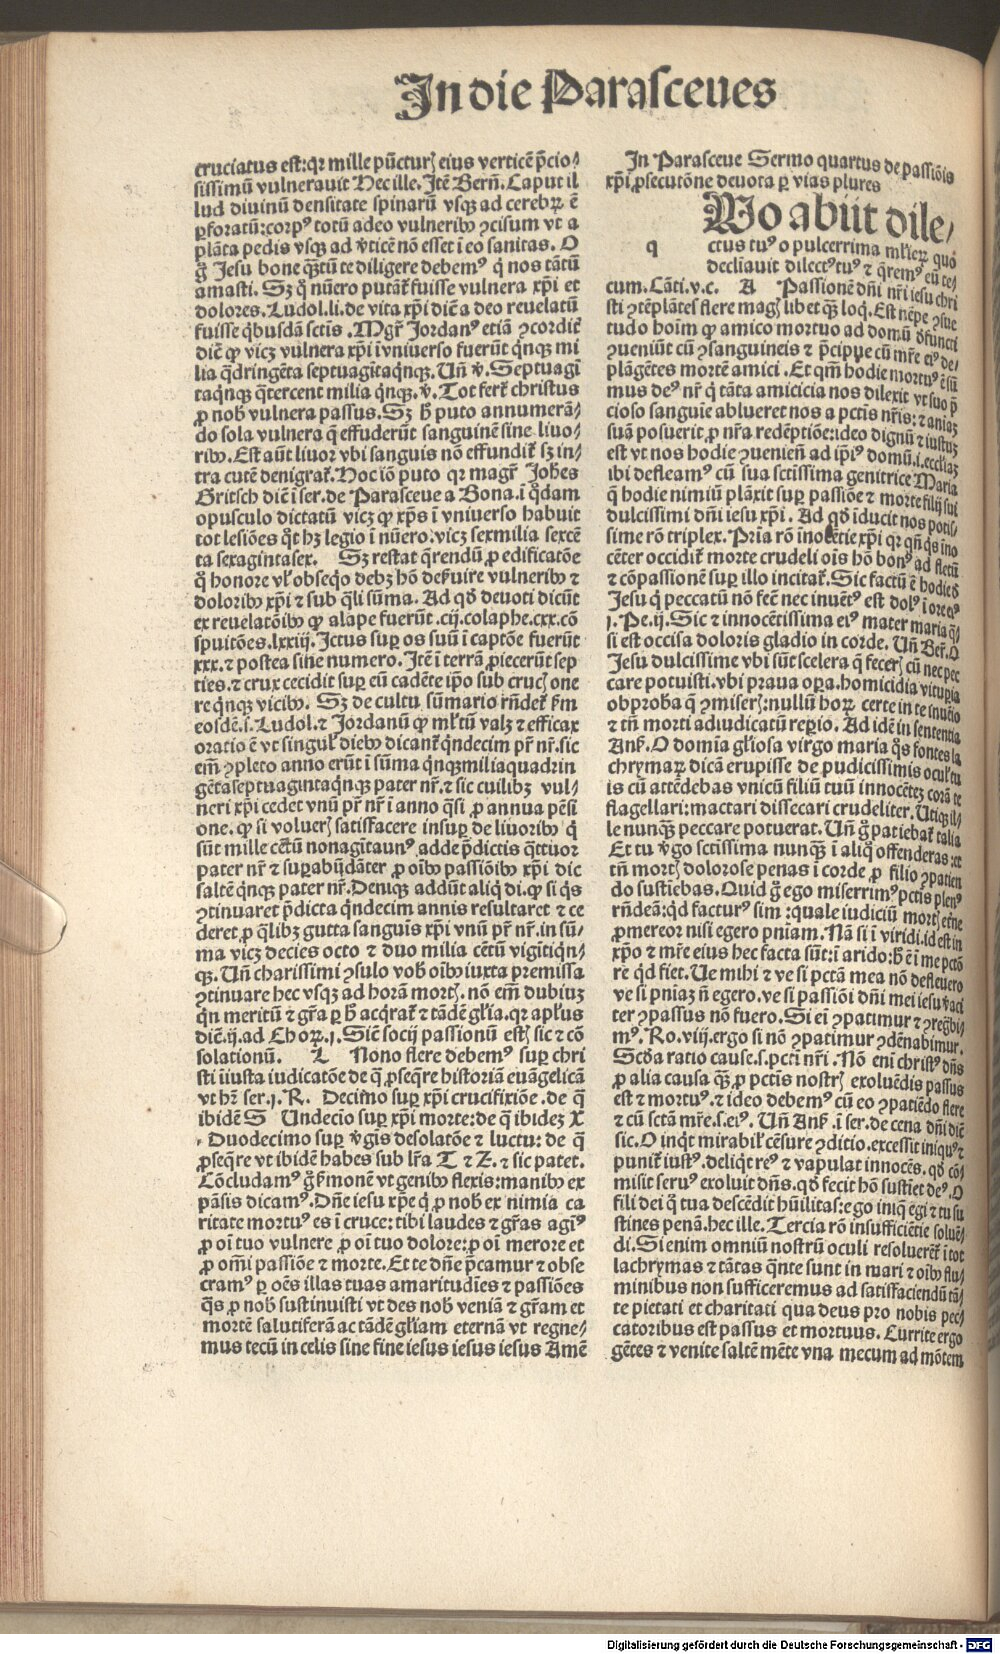 In die Parasceues
cruciatus est: qꝛ mille pūcturꝭ eius verticē p̄cio⸗
sissimū vulnerauit Hec ille. Itē Bern̄. Caput il
lud diuinū densitate spinarū vsqꝫ ad cerebꝝ ē
ꝑforatū: corpꝰ totū adeo vulneribꝰ ꝯcisum vt a
plāta pedis vsqꝫ ad v̓ticē nō esset ī eo sanitas. O
g̊ Iesu bone q̄ꝫtū te diligere debemꝰ qͥ nos tātū
amasti. Sꝫ qͦ nūero putāt᷑ fuisse vulnera xp̄i et
dolores. Ludol. li. de vita xp̄i diē a deo reuelatū
fuisse qͥbusdā sctīs. Mgr̄ Jordanꝰ etiā ꝯcordit᷑
diē ꝙ vicꝫ vulnera xp̄i ī vniuerso fuerūt qͥnqꝫ mi
lia qͣdringēta septuagītaqͥnqꝫ. Un̄ v̓. Septuagī
taqͥnqꝫ qͣtercent milia qͥnqꝫ. v̓. Tot fert᷑ christus
ꝓ nob̄ vulnera passus. Sꝫ h̄ puto annumerā⸗
do sola vulnera q̄ effuderūt sanguinē sine liuo⸗
ribꝰ. Est aūt liuor vbi sanguis nō effundit᷑ sꝫ in⸗
tra cutē denigrat᷑. Hoc iō puto qꝛ magr̄ Joh̄es
Gritsch diē ī ser. de Parasceue a Bona. ī qͦdam
opusculo dictatū vicꝫ ꝙ xp̄s ī vniuerso habuit
tot lesiōes qͦt hꝫ legio ī nūero. vicꝫ sexmilia sexcē
ta sexagintasex. Sꝫ restat q̄rendū ꝓ edificatōe
qͦ honore vl᷑ obseqͦo debꝫ hō deseruire vulneribꝰ ⁊
doloribꝰ xp̄i ⁊ sub qͣli sūma. Ad qd̓ deuoti dicūt
ex reuelatōibꝰ ꝙ alape fuerūt .cij. colaphe .cxx. cō
sputōes .lxxiij. Ictus suꝑ os suū ī captōe fuerūt
xxx. ⁊ postea sine numero. Itē ī terrā ꝓiecerūt sep
ties. ⁊ crux cecidit suꝑ eū cadēte ip̄o sub crucꝭ one
re qͥnqꝫ vicibꝰ. Sꝫ de cultu sūmario rn̄det᷑ ẜm
eosdē. s. Ludol. ⁊ Jordanū ꝙ ml̓tū valꝫ ⁊ efficax
oratio ē vt singul᷑ diebꝰ dicant᷑ qͥndecim pr̄ nr̄. sic
em̄ ꝯpleto anno erūt ī sūma qͥnqꝫmilia quadrin
gētaseptuagintaqͥnqꝫ pater nr̄. ⁊ sic cuilibꝫ vul⸗
neri xp̄i cedet vnū pr̄ nr̄ ī anno qͣsi ꝓ annua pēsi
one. ꝙ si volucrꝭ satisfacere insuꝑ de liuoribꝰ qͥ
sūt mille cētū nonagītaunꝰ adde p̄dictis qͣttuor
pater nr̄ ⁊ suꝑabūdāter ꝓ oībꝰ passiōibꝰ xp̄i dic
saltē qͥnqꝫ pater nr̄. Deniqꝫ addūt aliqͥ di. ꝙ si qͥs
ꝯtinuaret p̄dicta qͥndecim annis resultaret ⁊ ce
deret ꝓ qͣlibꝫ gutta sanguīs xp̄i vnū pr̄ nr̄. in sū⸗
ma vicꝫ decies octo ⁊ duo milia cētū vigītiqͥn⸗
qꝫ. Un̄ charissimi ꝯsulo vob̄ oībꝰ iuxta premissa
ꝯtinuare hec vsqꝫ ad horā mortꝭ. nō em̄ dubiuꝫ
qͥn meritū ⁊ gr̄a ꝑ h̄ acqͥrat᷑ ⁊ tādē gl̓ia. qꝛ apl̓us
diē .ij. ad Choꝝ. j. Sic̄ socij passionū estꝭ sic ⁊ cō
solationū. L Nono flere debemꝰ suꝑ chri
sti iniusta iudicatōe de q̄ ꝓseqͥre historiā euāgelicā
vt hr̄ ser. j. R. Decimo suꝑ xp̄i crucifixiōe. de q̄
ibidē S Undecīo suꝑ xp̄i morte: de q̄ ibidez X
. Duodecimo suꝑ v̓gis desolatōe ⁊ luctu: de q̄
ꝓseqͥre vt ibidē habes sub lr̄a T ⁊ Z. ⁊ sic patet.
Cōcludamꝰ g̊ ẜmonē vt genibꝰ flexis: manibꝰ ex
pāsis dicamꝰ. Dn̄e iesu xp̄e qͥ ꝓ nob̄ ex nimia ca
ritate mortuꝰ es ī cruce: tibi laudes ⁊ gr̄as agīꝰ
ꝓ oī tuo vulnere ꝓ oī tuo dolore: ꝓ oī merore et
ꝓ om̄i passiōe ⁊ morte. Et te dn̄e p̄camur ⁊ obse
cramꝰ ꝑ oēs illas tuas amaritudīes ⁊ passiōes
qͣs ꝓ nob̄ sustinuisti vt des nob̄ veniā ⁊ gr̄am et
mortē salutiferā ac tādē gl̓iam eternā vt regne⸗
mus tecū in celis sine fine iesus iesus iesus Amē
In Parasceue Sermo quartus de passiōis
xp̄i ꝓsecutōne deuota ꝑ vias plures
qUo abiit dile⸗
ctus tuꝰ o pulcerrima ml̓ieꝝ quo
declīauit dilectꝰ tuꝰ ⁊ q̄remꝰ eū te⸗
cum. Cāti. v. c. A Passionē dn̄i nr̄i iesu chri
sti ꝯtēplātes flere magꝭ libet q̄ꝫ loqͥ. Est nēpe ꝯsue
tudo hoīm ꝙ amico mortuo ad domū defuncti
ꝯueniūt cū ꝯsanguineis ⁊ p̄cipue cū mr̄e eiꝰ de⸗
plāgētes mortē amici. Et qm̄ hodie mortuꝰ ē sū
mus deꝰ nr̄ qͥ tāta amicicia nos dilexit vt suo p̄
cioso sanguīe ablueret nos a pctīs nr̄is: ⁊ aniaꝫ
suā posuerit ꝓ nr̄a redēptiōe: ideo dignū ⁊ iustuꝫ
est vt nos hodie ꝯuenien̄ ad ip̄iꝰ domū. i. eccl̓iaꝫ
ibi defleamꝰ cū sua sctīssima genitrice Maria
q̄ hodie nimiū plāxit suꝑ passiōe ⁊ morte filij sui
dulcissimi dn̄i iesu xp̄i. Ad qd̓ īducit nos potis⸗
sime rō triplex. Pria rō inocētie xp̄i qꝛ qn̄ qͥs ino
cēter occidit᷑ morte crudeli oīs hō bonꝰ ad fletū
⁊ cōpassionē suꝑ illo incitat᷑. Sic factū ē hodie d̓
Iesu qͥ peccatū nō fecit nec inuētꝰ est dolꝰ ī ore eiꝰ
j. Pe. ij. Sic ⁊ innocētissima eiꝰ mater maria qͣ⸗
si est occisa doloris gladio in corde. Un̄ Ber̄. O
Iesu dulcissime vbi sūt scelera q̄ fecerꝭ cū nec pec
care potuisti. vbi praua oꝑa. homicidia vituꝑia
obproba q̄ ꝯmiserꝭ: nullū hoꝝ certe in te inuēio
⁊ tn̄ morti adiudicatū reꝑio. Ad idē in sententia
Anẜ. O domīa gl̓iosa virgo maria qͦs fontes la
chrymaꝝ dicā erupisse de pudicissimis ocul̓ tu
is cū attēdebas vnicū filiū tuū innocētez corā te
flagellari: mactari dissecari crudeliter. Utiqꝫ il⸗
le nunqͣꝫ peccare potuerat. Un̄ g̊ patiebat᷑ talia
Et tu v̓go sctīssima nunqͣꝫ ī aliqͦ offenderas: ⁊
tn̄ mortꝭ dolorose penas ī corde ꝓ filio ꝯpatien
do sustīebas. Quid g̊ ego miserrimꝰ pctīs plenꝰ
rn̄deā: qd̓ facturꝰ sim: quale iudiciū mortꝭ etn̄e
ꝓmereor nisi egero pniam̄. Nā si ī viridi. id est in
xp̄o ⁊ mr̄e eius hec facta sūt: ī arido: h̄ ē ī me pctō
re qd̓ fiet. Ue mihi ⁊ ve si pctā mea nō defleuero
ve si pniaꝫ n̄ egero. ve si passiōi dn̄i mei iesu v̓aci
ter ꝯpassus nō fuero. Si ei ꝯpatimur ⁊ ꝯregbi⸗
mꝰ. Ro. viij. ergo si nō ꝯpatimur ꝯdēnabimur.
Scd̓a ratio cause. s. pctī nr̄i. Nō eni christꝰ dn̄s
ꝓ alia causa qͣꝫ ꝓ pctīs nostrꝭ exoluēdis passus
est ⁊ mortuꝰ. ⁊ ideo debemꝰ cū eo ꝯpatiēdo flere
⁊ cū sctā mr̄e. s. eiꝰ. Un̄ Anẜ. ī ser. de cena dn̄i diē
sic. O inqͥt mirabil᷑ cēsure ꝯditio. excessit iniquꝰ ⁊
punit᷑ iustꝰ. deliqͥt reꝰ ⁊ vapulat innocēs. qd̓ cō⸗
misit seruꝰ exoluit dn̄s. qd̓ fecit hō sustīet deꝰ. O
fili dei qͦ tua descēdit hūilitas: ego iniqͣ egi ⁊ tu su
stines penā. hec ille. Tercia rō insufficiētie soluē⸗
di. Si enim omniū nostrū oculi resoluerēt᷑ ī tot
lachrymas ⁊ tātas qͣnte sunt in mari ⁊ oībꝰ flu⸗
minibus non sufficeremus ad satisfaciendū tā⸗
te pietati et charitati qua deus pro nobis pec⸗
catoribus est passus et mortuus. Currite ergo
gētes ⁊ venite saltē mēte vna mecum ad mōtem
Digitalisierung gefördert durch die Deutsche Forschungsgemeinschaft - DFG